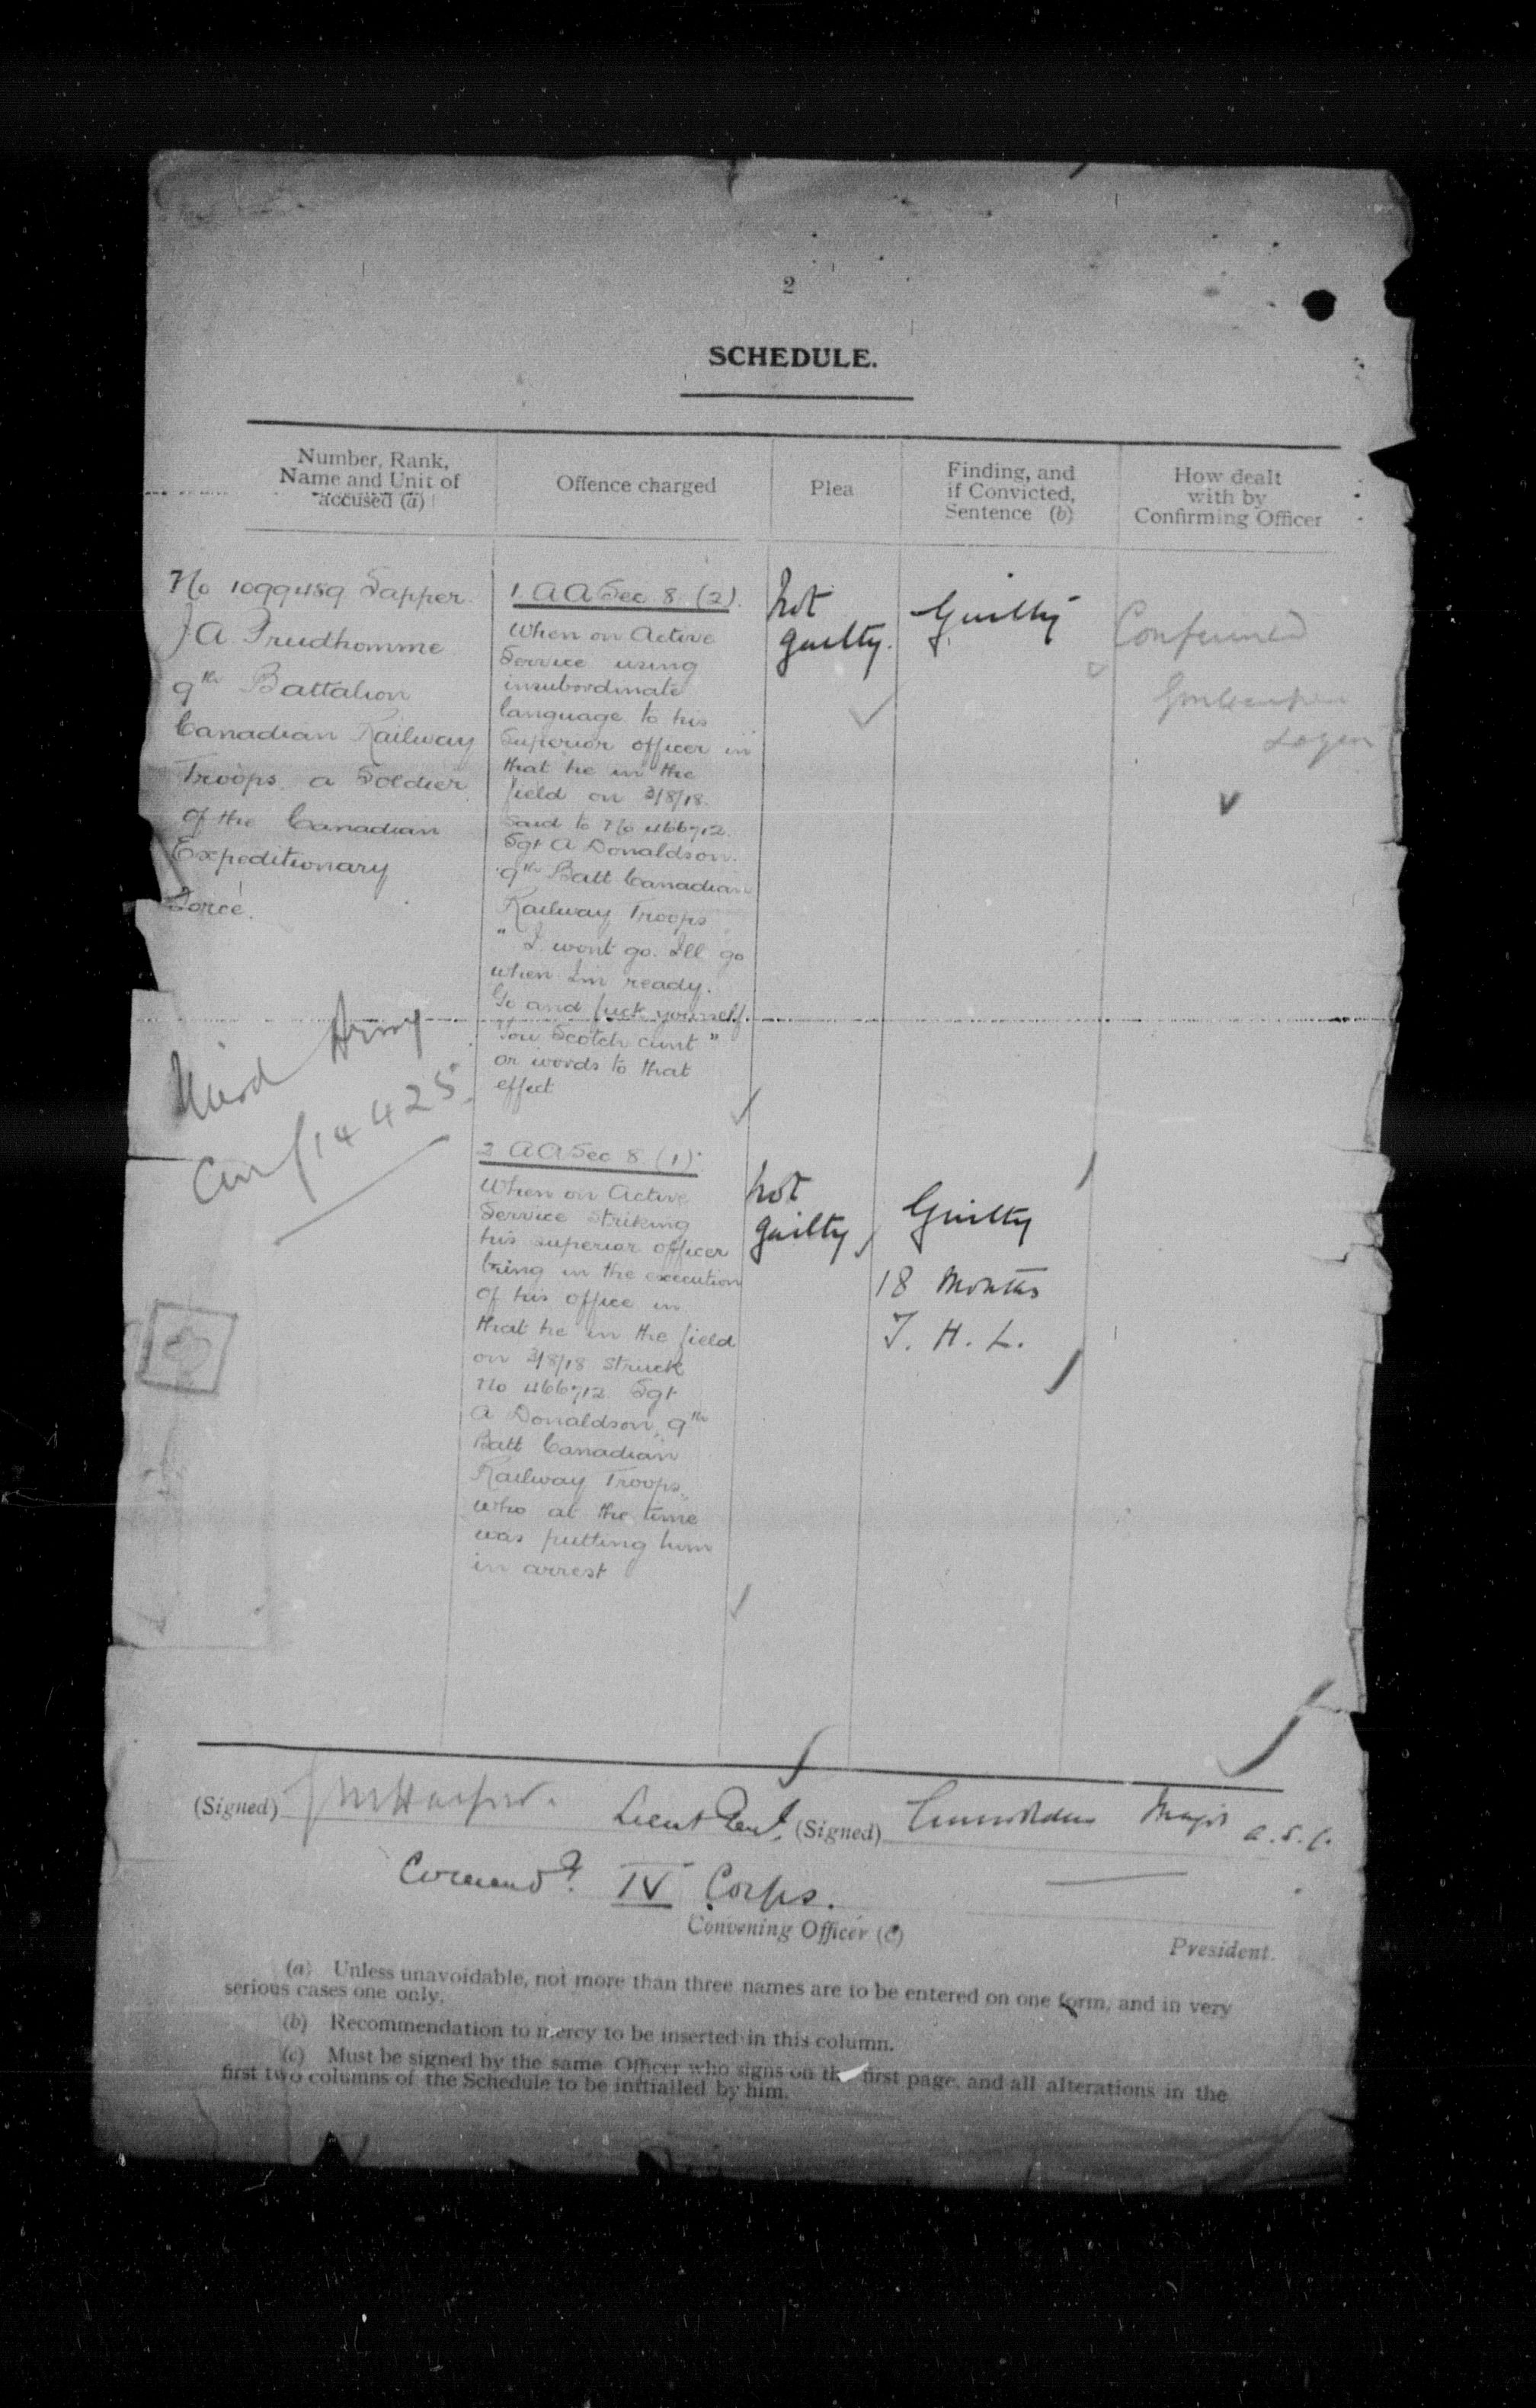 2
SCHEDULE.
Number, Rank,
Name and Unit of
accused (a)
Offence charged
Plea
Finding, and
if Convicted,
Sentence (b)
How dealt
with by
Confirming Officer
No 1099489 Sapper
J A Prudhomme
9th Battalion
Canadian Railway
Troops a Soldier
of the Canadian
Expeditionary
Force.
1 A A Sec 8 (2).
When on Active
Service using
insubordinate
language to his
superior officer in
that he in the
field on 3/8/18
said to No 466712
Sgt A Donaldson
9th Batt Canadian
Railway Troops
" I wont go. Ill go
when Im ready.
Go and fuck yourself
You Scotch cunt "
or words to that
effect
Not
guilty.
Guilty
Confirmed
Third Army
14425
2 A A Sec 8 (1)
When on Active
Service striking
his superior officer
being in the execution
of his office in
that he in the field
on 3/8/18 struck
No 466712 Sgt
A Donaldson, 9th
Batt Canadian
Railway Troops,
who at the time
was putting him
in arrest
Not
guilty
Guilty
18 Months
I. H. L.
(Signed)
Lieut Genl.
(Signed)
Major A.S.C.
Commdg. IV Corps.
Convening Officer (c)
President.
(a) Unless unavoidable, not more than three names are to be entered on one form, and in very
serious cases one only.
(b) Recommendation to mercy to be inserted in this column.
(c) Must be signed by the same Officer who signs on the first page, and all alterations in the
first two columns of the Schedule to be initialled by him.